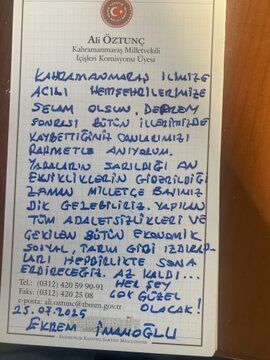 Ali ÖZTUNÇ
Kahramanmaraş Milletvekili
İçişleri Komisyonu Üyesi
KAHRAMANMARAŞ İLİMİZE
ACILI HEMŞEHRİLERİMİZE
SELAM OLSUN. DEPREM
SONRASI BÜTÜN İLLERİMİZDE
KAYBETTİĞİMİZ CANLARIMIZI
RAHMETLE ANIYORUM.
YARALARIN SARILDIĞI AN
EKSİKLİKLERİN GİDERİLDİĞİ
ZAMAN MİLLETÇE BAŞIMIZ
DİK GEZEBİLİRİZ. YAPILAN
TÜM ADALETSİZLİKLERİ VE
ÇEKİLEN BÜTÜN EKONOMİK
SOSYAL, TARIM GİBİ IZDIRAP-
LARI HEPBİRLİKTE SONA
ERDİRECEĞİZ. AZ KALDI...
Tel.: (0312) 420 59 90-91
HER ŞEY
Faks: (0312) 420 25 08
ÇOK GÜZEL
e-posta: ali.oztunc@tbmm.gov.tr
OLACAK!
25.07.2025
EKREM İMAMOĞLU